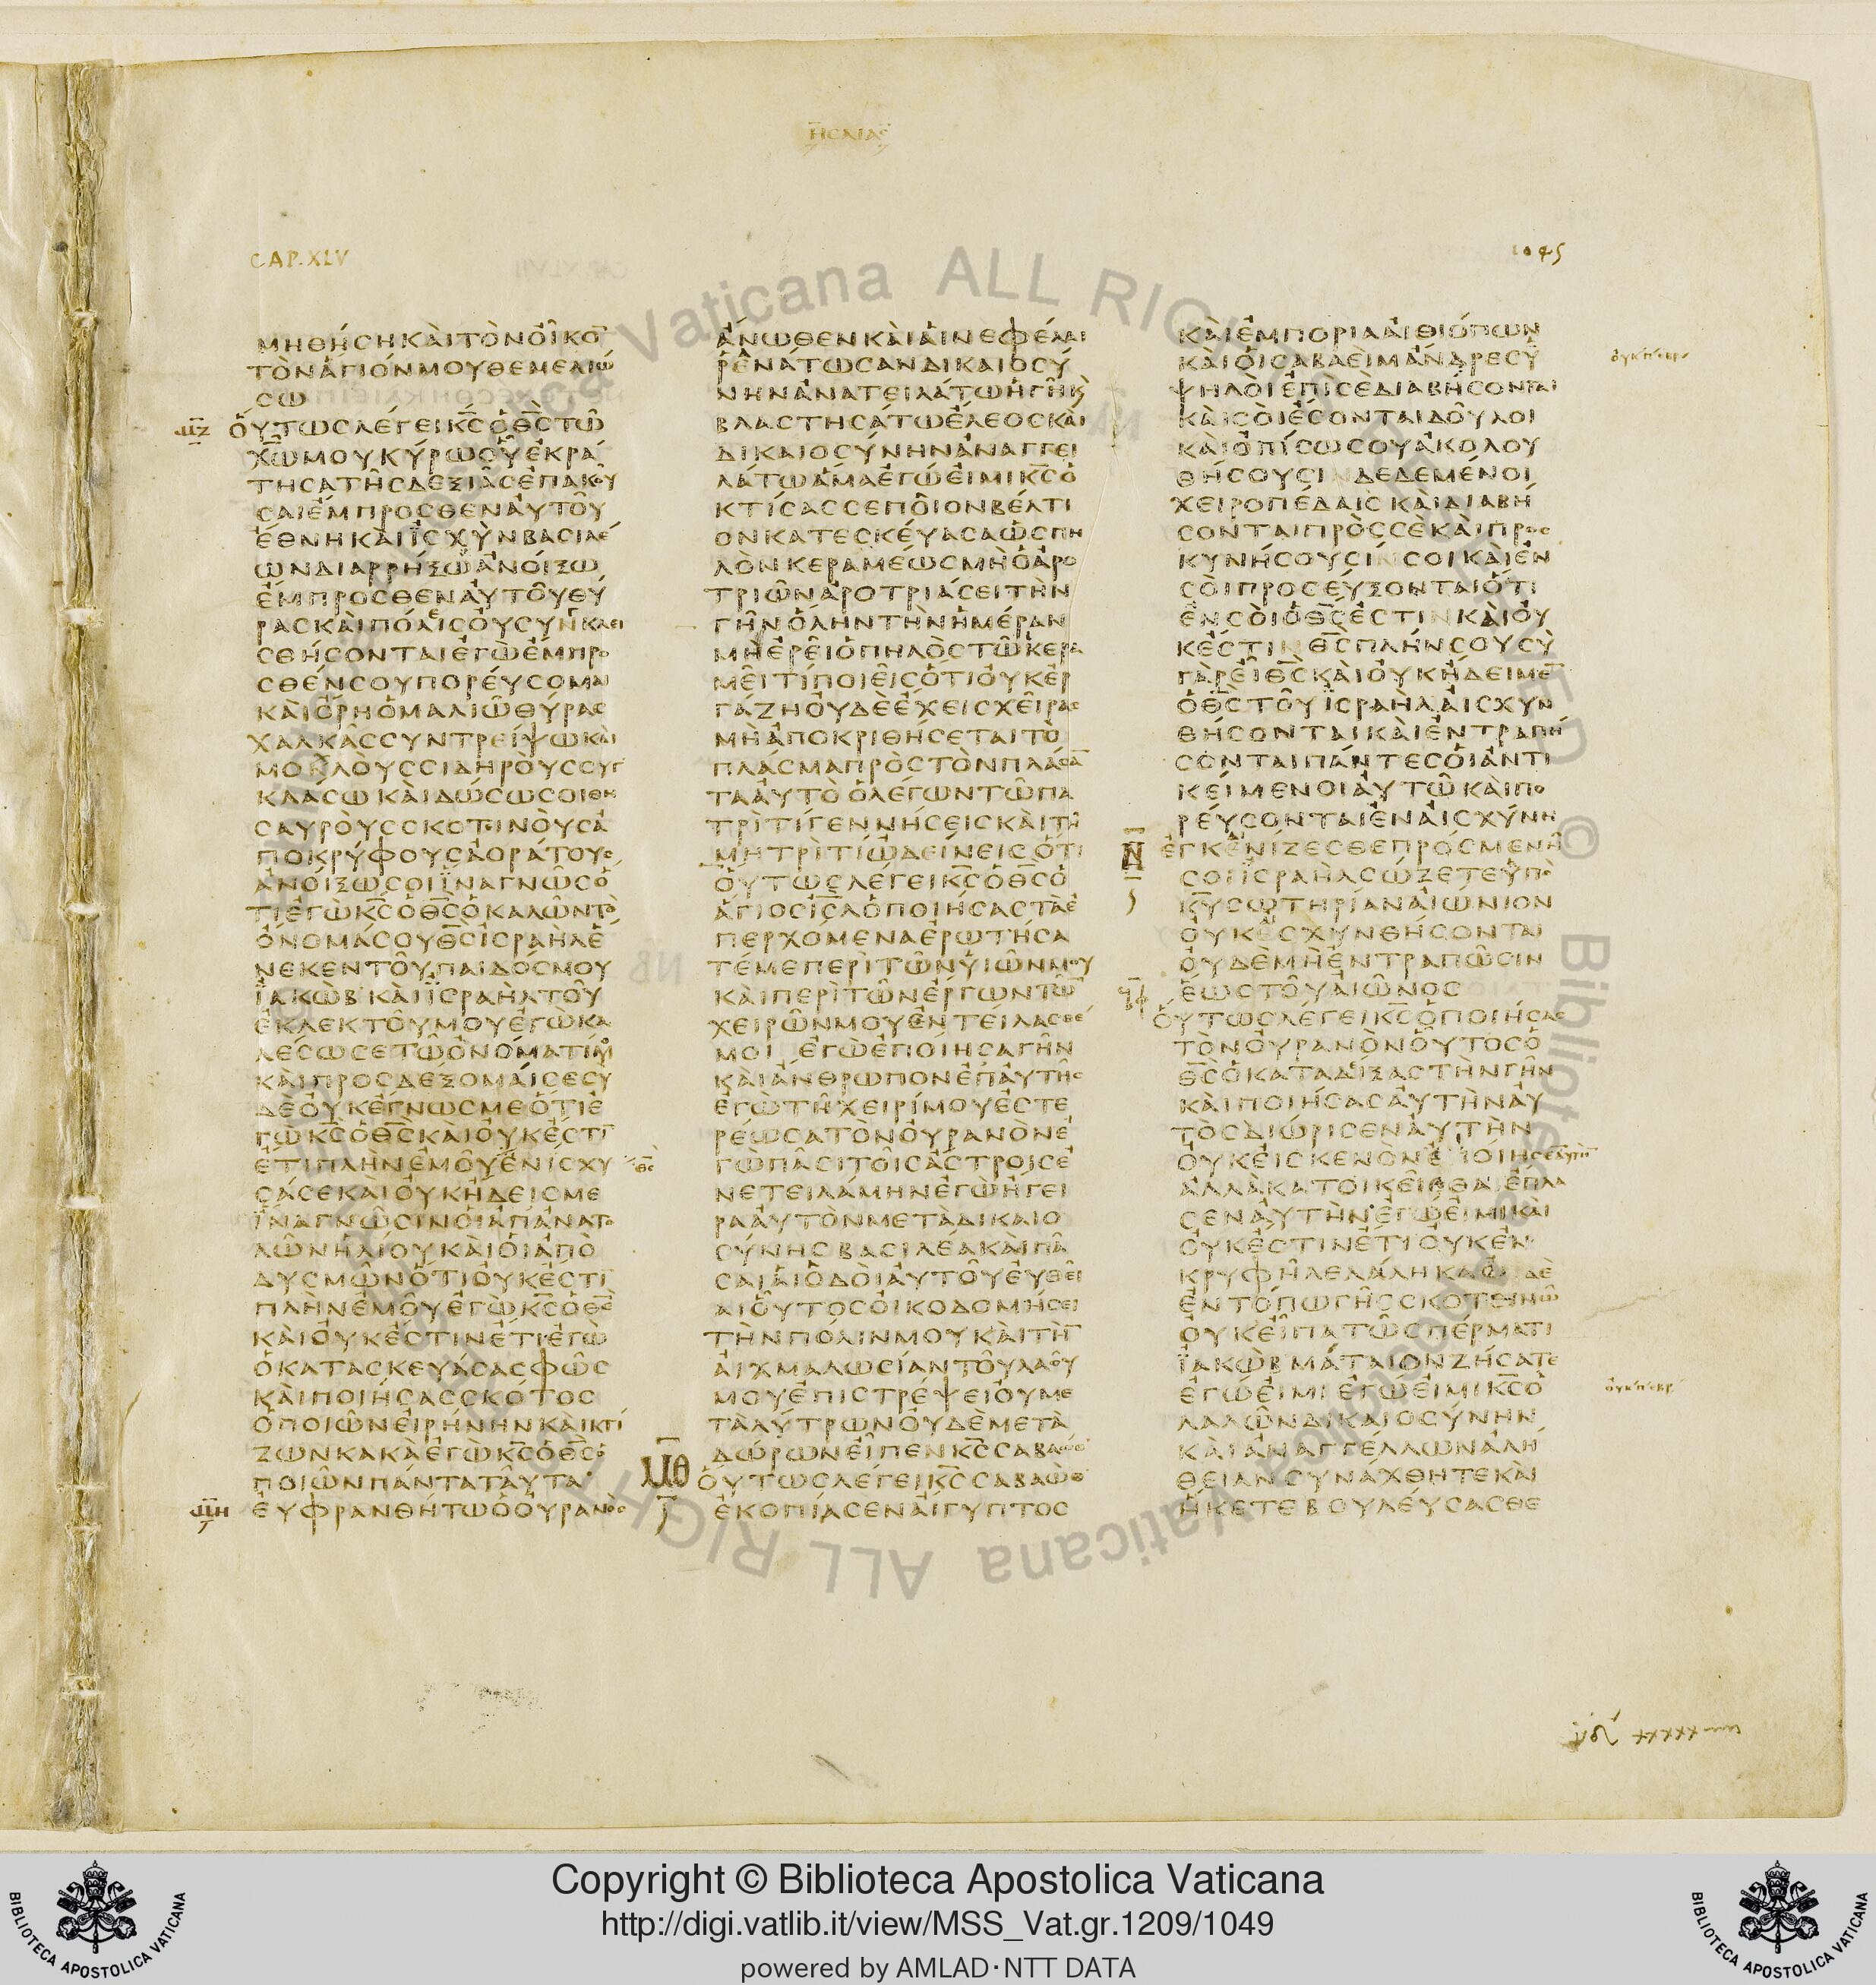 ΗCΑΙΑC
CAP. XLV
1045
ΜΗΘΗCΗΚΑΙΤΟΝΟΙΚΟ̅
ΤΟΝΑΓΙΟΝΜΟΥΘΕΜΕΛΙω
Cω
ΜΖ
ΟΥΤωCΛΕΓΕΙΚ̅C̅ΟΘ̅C̅Τω
Χω̅ΜΟΥΚΥΡωΟΥΕΚΡΑ
ΤΗCΑΤΗCΔΕΞΙΑCΕΠΑΚΟΥ
CΑΙΕΜΠΡΟCΘΕΝΑΥΤΟΥ
ΕΘΝΗΚΑΙΪCΧΥΝΒΑCΙΛΕ
ωΝΔΙΑΡΡΗΞωΑΝΟΙΞω
ΕΜΠΡΟCΘΕΝΑΥΤΟΥΘΥ
ΡΑCΚΑΙΠΟΛΙCΟΥCΥΝΚΛΕΙ
CΘΗCΟΝΤΑΙΕΓωΕΜΠΡΟ
CΘΕΝCΟΥΠΟΡΕΥCΟΜΑΙ
ΚΑΙΟΡΗΟΜΑΛΙωΘΥΡΑC
ΧΑΛΚΑCCΥΝΤΡΕΙΨωΚΑΙ
ΜΟΧΛΟΥCCΙΔΗΡΟΥCCΥΓ
ΚΛΑCωΚΑΙΔωCωCΟΙΘΗ
CΑΥΡΟΥCCΚΟΤΙΝΟΥCΑ
ΠΟΚΡΥΦΟΥCΑΟΡΑΤΟΥC
ΑΝΟΙΞωCΟΙΪΝΑΓΝωCΟ
ΤΙΕΓωΚ̅C̅ΟΘ̅C̅ΟΚΑΛωΝΤΟ
ΟΝΟΜΑCΟΥΘ̅C̅ΙCΡΑΗΛΕ
ΝΕΚΕΝΤΟΥΠΑΙΔΟCΜΟΥ
ΪΑΚωΒΚΑΙΪCΡΑΗΛΤΟΥ
ΕΚΛΕΚΤΟΥΜΟΥΕΓωΚΑ
ΛΕCωCΕΤωΟΝΟΜΑΤΙΜΟΥ
ΚΑΙΠΡΟCΔΕΞΟΜΑΙCΕCΥ
ΔΕΟΥΚΕΓΝωCΜΕΟΤΙΕ
ΓωΚ̅C̅ΟΘ̅C̅ΚΑΙΟΥΚΕCΤΙ̅
ΕΤΙΠΛΗΝΕΜΟΥΕΝΙCΧΥ
Θ̅C̅
CΑCΕΚΑΙΟΥΚΗΔΕΙCΜΕ
ΪΝΑΓΝωCΙΝΟΙΑΠΑΝΑΤΟ
ΛωΝΗΛΙΟΥΚΑΙΟΙΑΠΟ
ΔΥCΜωΝΟΤΙΟΥΚΕCΤΙ̅
ΠΛΗΝΕΜΟΥΕΓωΚ̅C̅ΟΘ̅C̅
ΚΑΙΟΥΚΕCΤΙΝΕΤΙΕΓω
ΟΚΑΤΑCΚΕΥΑCΑCΦωC
ΚΑΙΠΟΙΗCΑCCΚΟΤΟC
ΟΠΟΙωΝΕΙΡΗΝΗΝΚΑΙΚΤΙ
ΖωΝΚΑΚΑΕΓωΚ̅C̅ΟΘ̅C̅Ο
ΠΟΙωΝΠΑΝΤΑΤΑΥΤΑ
ΜΗ
ΕΥΦΡΑΝΘΗΤωΟΟΥΡΑΝΟC
ΑΝωΘΕΝΚΑΙΑΙΝΕΦΕΛΑΙ
ΡΕΝΑΤωCΑΝΔΙΚΑΙΟCΥ
ΝΗΝΑΝΑΤΕΙΛΑΤωΗΓΗΚ
ΒΛΑCΤΗCΑΤωΕΛΕΟCΚΑΙ
ΔΙΚΑΙΟCΥΝΗΝΑΝΑΓΓΕΙ
ΛΑΤωΑΜΑΕΓωΕΙΜΙΚ̅C̅Ο
ΚΤΙCΑCCΕΠΟΙΟΝΒΕΛΤΙ
ΟΝΚΑΤΕCΚΕΥΑCΑωCΠΗ
ΛΟΝΚΕΡΑΜΕωCΜΗΟΑΡΟ
ΤΡΙωΝΑΡΟΤΡΙΑCΕΙΤΗΝ
ΓΗΝΟΛΗΝΤΗΝΗΜΕΡΑΝ
ΜΗΕΡΕΙΟΠΗΛΟCΤωΚΕΡΑ
ΜΕΙΤΙΠΟΙΕΙCΟΤΙΟΥΚΕΡ
ΓΑΖΗΟΥΔΕΕΧΕΙCΧΕΙΡΑC
ΜΗΑΠΟΚΡΙΘΗCΕΤΑΙΤΟ
ΠΛΑCΜΑΠΡΟCΤΟΝΠΛΑCΑ̅
ΤΑΑΥΤΟΟΛΕΓωΝΤωΠΑ
ΤΡΙΤΙΓΕΝΝΗCΕΙCΚΑΙΤΗ
ΜΗΤΡΙΤΙωΔΕΙΝΕΙCΟΤΙ
ΟΥΤωCΛΕΓΕΙΚ̅C̅ΟΘ̅C̅Ο
ΑΓΙΟCΙC̅ΛΟΠΟΙΗCΑCΤΑΕ
ΠΕΡΧΟΜΕΝΑΕΡωΤΗCΑ
ΤΕΜΕΠΕΡΙΤωΝΥΙωΝΜΟΥ
ΚΑΙΠΕΡΙΤωΝΕΡΓωΝΤω̅
ΧΕΙΡωΝΜΟΥΕΝΤΕΙΛΑCΘΕ
ΜΟΙ ΕΓωΕΠΟΙΗCΑΓΗΝ
ΚΑΙΑΝΘΡωΠΟΝΕΠΑΥΤΗC
ΕΓωΤΗΧΕΙΡΙΜΟΥΕCΤΕ
ΡΕωCΑΤΟΝΟΥΡΑΝΟΝΕ
ΓωΠΑCΙΤΟΙCΑCΤΡΟΙCΕ
ΝΕΤΕΙΛΑΜΗΝΕΓωΗΓΕΙ
ΡΑΑΥΤΟΝΜΕΤΑΔΙΚΑΙΟ
CΥΝΗCΒΑCΙΛΕΑΚΑΙΠΑ
CΑΙΑΙΟΔΟΙΑΥΤΟΥΕΥΘΕΙ
ΑΙΟΥΤΟCΟΙΚΟΔΟΜΗCΕΙ
ΤΗΝΠΟΛΙΝΜΟΥΚΑΙΤΗ̅
ΑΙΧΜΑΛωCΙΑΝΤΟΥΛΑΟΥ
ΜΟΥΕΠΙCΤΡΕΨΕΙΟΥΜΕ
ΤΑΛΥΤΡωΝΟΥΔΕΜΕΤΑ
ΔωΡωΝΕΙΠΕΝΚ̅C̅CΑΒΑωΘ
ΜΘ
ΟΥΤωCΛΕΓΕΙΚ̅C̅CΑΒΑωΘ
ΕΚΟΠΙΑCΕΝΑΙΓΥΠΤΟC
ΚΑΙΕΜΠΟΡΙΑΑΙΘΙΟΠωΝ
ΚΑΙΟΙCΑΒΑΕΙΜΑΝΔΡΕCΥ
ΨΗΛΟΙΕΠΙCΕΔΙΑΒΗCΟΝΤΑΙ
ΚΑΙCΟΙΕCΟΝΤΑΙΔΟΥΛΟΙ
ΚΑΙΟΠΙCωCΟΥΑΚΟΛΟΥ
ΘΗCΟΥCΙΝΔΕΔΕΜΕΝΟΙ
ΧΕΙΡΟΠΕΔΑΙCΚΑΙΔΙΑΒΗ
CΟΝΤΑΙΠΡΟCCΕΚΑΙΠΡΟC
ΚΥΝΗCΟΥCΙΝCΟΙΚΑΙΕΝ
CΟΙΠΡΟCΕΥΞΟΝΤΑΙΟΤΙ
ΕΝCΟΙΟΘ̅C̅ΕCΤΙΝΚΑΙΟΥ
ΚΕCΤΙΝΘ̅C̅ΠΛΗΝCΟΥCΥ
ΓΑΡΕΙΘ̅C̅ΚΑΙΟΥΚΗΔΕΙΜΕ̅
ΟΘ̅C̅ΤΟΥΪCΡΑΗΛΑΙCΧΥΝ
ΘΗCΟΝΤΑΙΚΑΙΕΝΤΡΑΠΗ
CΟΝΤΑΙΠΑΝΤΕCΟΙΑΝΤΙ
ΚΕΙΜΕΝΟΙΑΥΤωΚΑΙΠΟ
ΡΕΥCΟΝΤΑΙΕΝΑΙCΧΥΝΗ
Ν
ΕΓΚΕΝΙΖΕCΘΕΠΡΟCΜΕΝΗ
CΟΙΪCΡΑΗΛCωΖΕΤΕΥΠΟ
Κ̅Υ̅CωΤΗΡΙΑΝΑΙωΝΙΟΝ
ΟΥΚΕCΧΥΝΘΗCΟΝΤΑΙ
ΟΥΔΕΜΗΕΝΤΡΑΠωCΙΝ
ΕωCΤΟΥΑΙωΝΟC
ΟΥΤωCΛΕΓΕΙΚ̅C̅ΟΠΟΙΗCΑC
ΤΟΝΟΥΡΑΝΟΝΟΥΤΟCΟ
Θ̅C̅ΟΚΑΤΑΔΙΞΑCΤΗΝΓΗΝ
ΚΑΙΠΟΙΗCΑCΑΥΤΗΝΑΥ
ΤΟCΔΙωΡΙCΕΝΑΥΤΗΝ
ΟΥΚΕΙCΚΕΝΟΝΕΠΟΙΗCΕΑΥΤΗ̅
ΑΛΛΑΚΑΤΟΙΚΕΙCΘΑΙΕΠΛΑ
CΕΝΑΥΤΗΝΕΓωΕΙΜΙΚΑΙ
ΟΥΚΕCΤΙΝΕΤΙΟΥΚΕΝ
ΚΡΥΦΗΛΕΛΑΛΗΚΑΟΥΔΕ
ΕΝΤΟΠωΓΗCCΚΟΤΕΙΝω
ΟΥΚΕΙΠΑΤωCΠΕΡΜΑΤΙ
ΪΑΚωΒΜΑΤΑΙΟΝΖΗCΑΤΕ
ΕΓωΕΙΜΙΕΓωΕΙΜΙΚ̅C̅Ο
ΛΑΛωΝΔΙΚΑΙΟCΥΝΗΝ
ΚΑΙΑΝΑΓΓΕΛΛωΝΑΛΗ
ΘΕΙΑΝCΥΝΑΧΘΗΤΕΚΑΙ
ΗΚΕΤΕΒΟΥΛΕΥCΑCΘΕ
Vaticana ALL RIGHTS RESERVED ©
Biblioteca Apostolica Vaticana ALL RIGH
Copyright © Biblioteca Apostolica Vaticana
http://digi.vatlib.it/view/MSS_Vat.gr.1209/1049
powered by AMLAD·NTT DATA
BIBLIOTECA APOSTOLICA VATICANA
BIBLIOTECA APOSTOLICA VATICANA